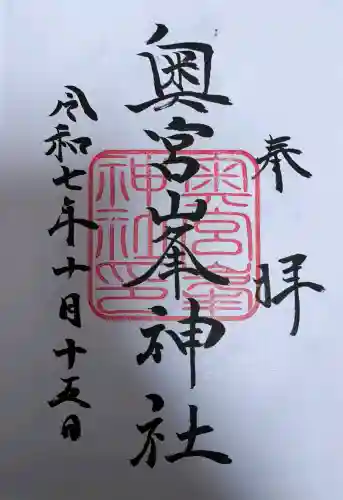 奉拝
奥宮峯神社
令和七年十月十五日
奥宮峯
神社印